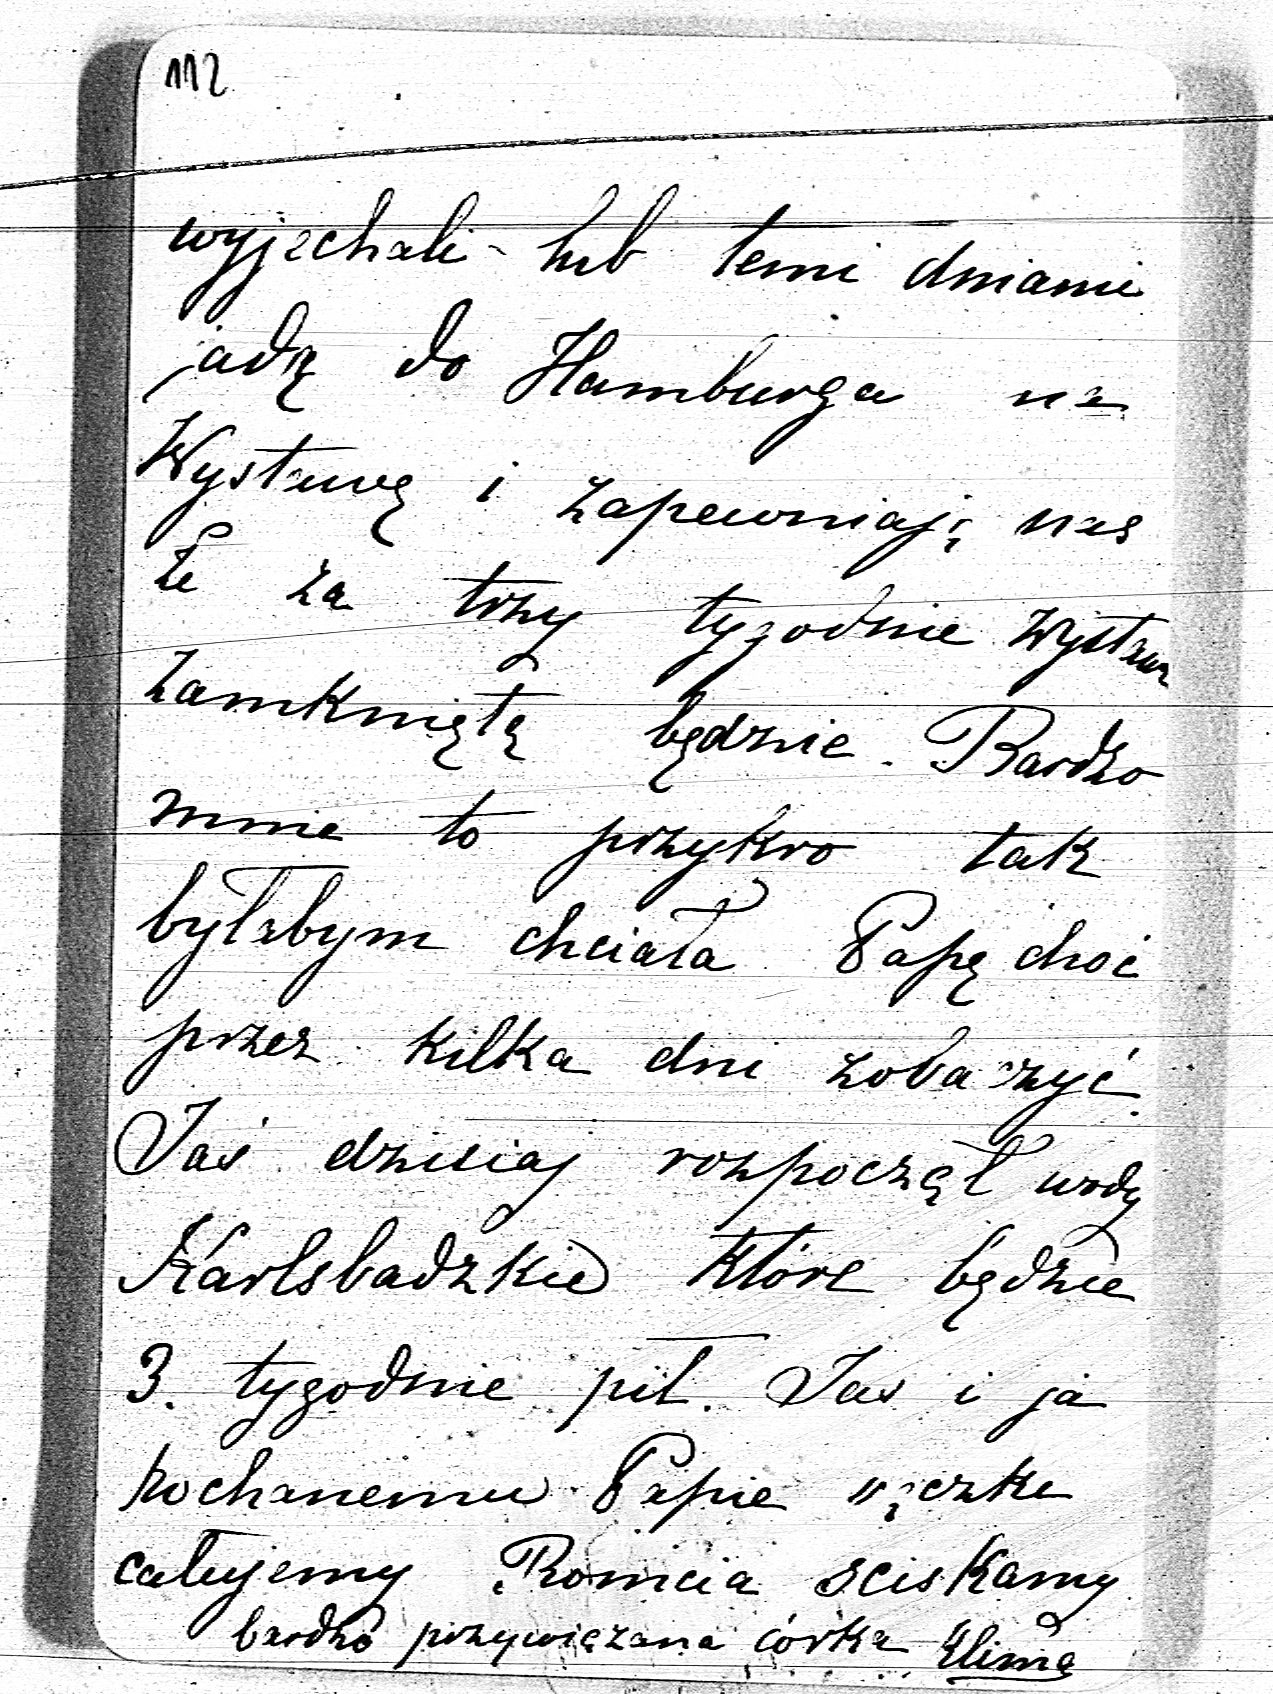 112
wyjechali - lub temi dniami
jadą do Hamburga na
Wystawę i zapewniają nas
że za trzy tygodnie Wystawa
zamkniętą będzie. Bardzo
mnie to przykro tak
byłabym chciała Papę choć
przez kilka dni zobaczyć.
Jaś dzisiaj rozpoczął wody
Karlsbadzkie które będzie
3. tygodnie pił. Jaś i ja
kochanemu Papie rączke
całujemy Romcia sciskamy
bardzo przywiązana córka